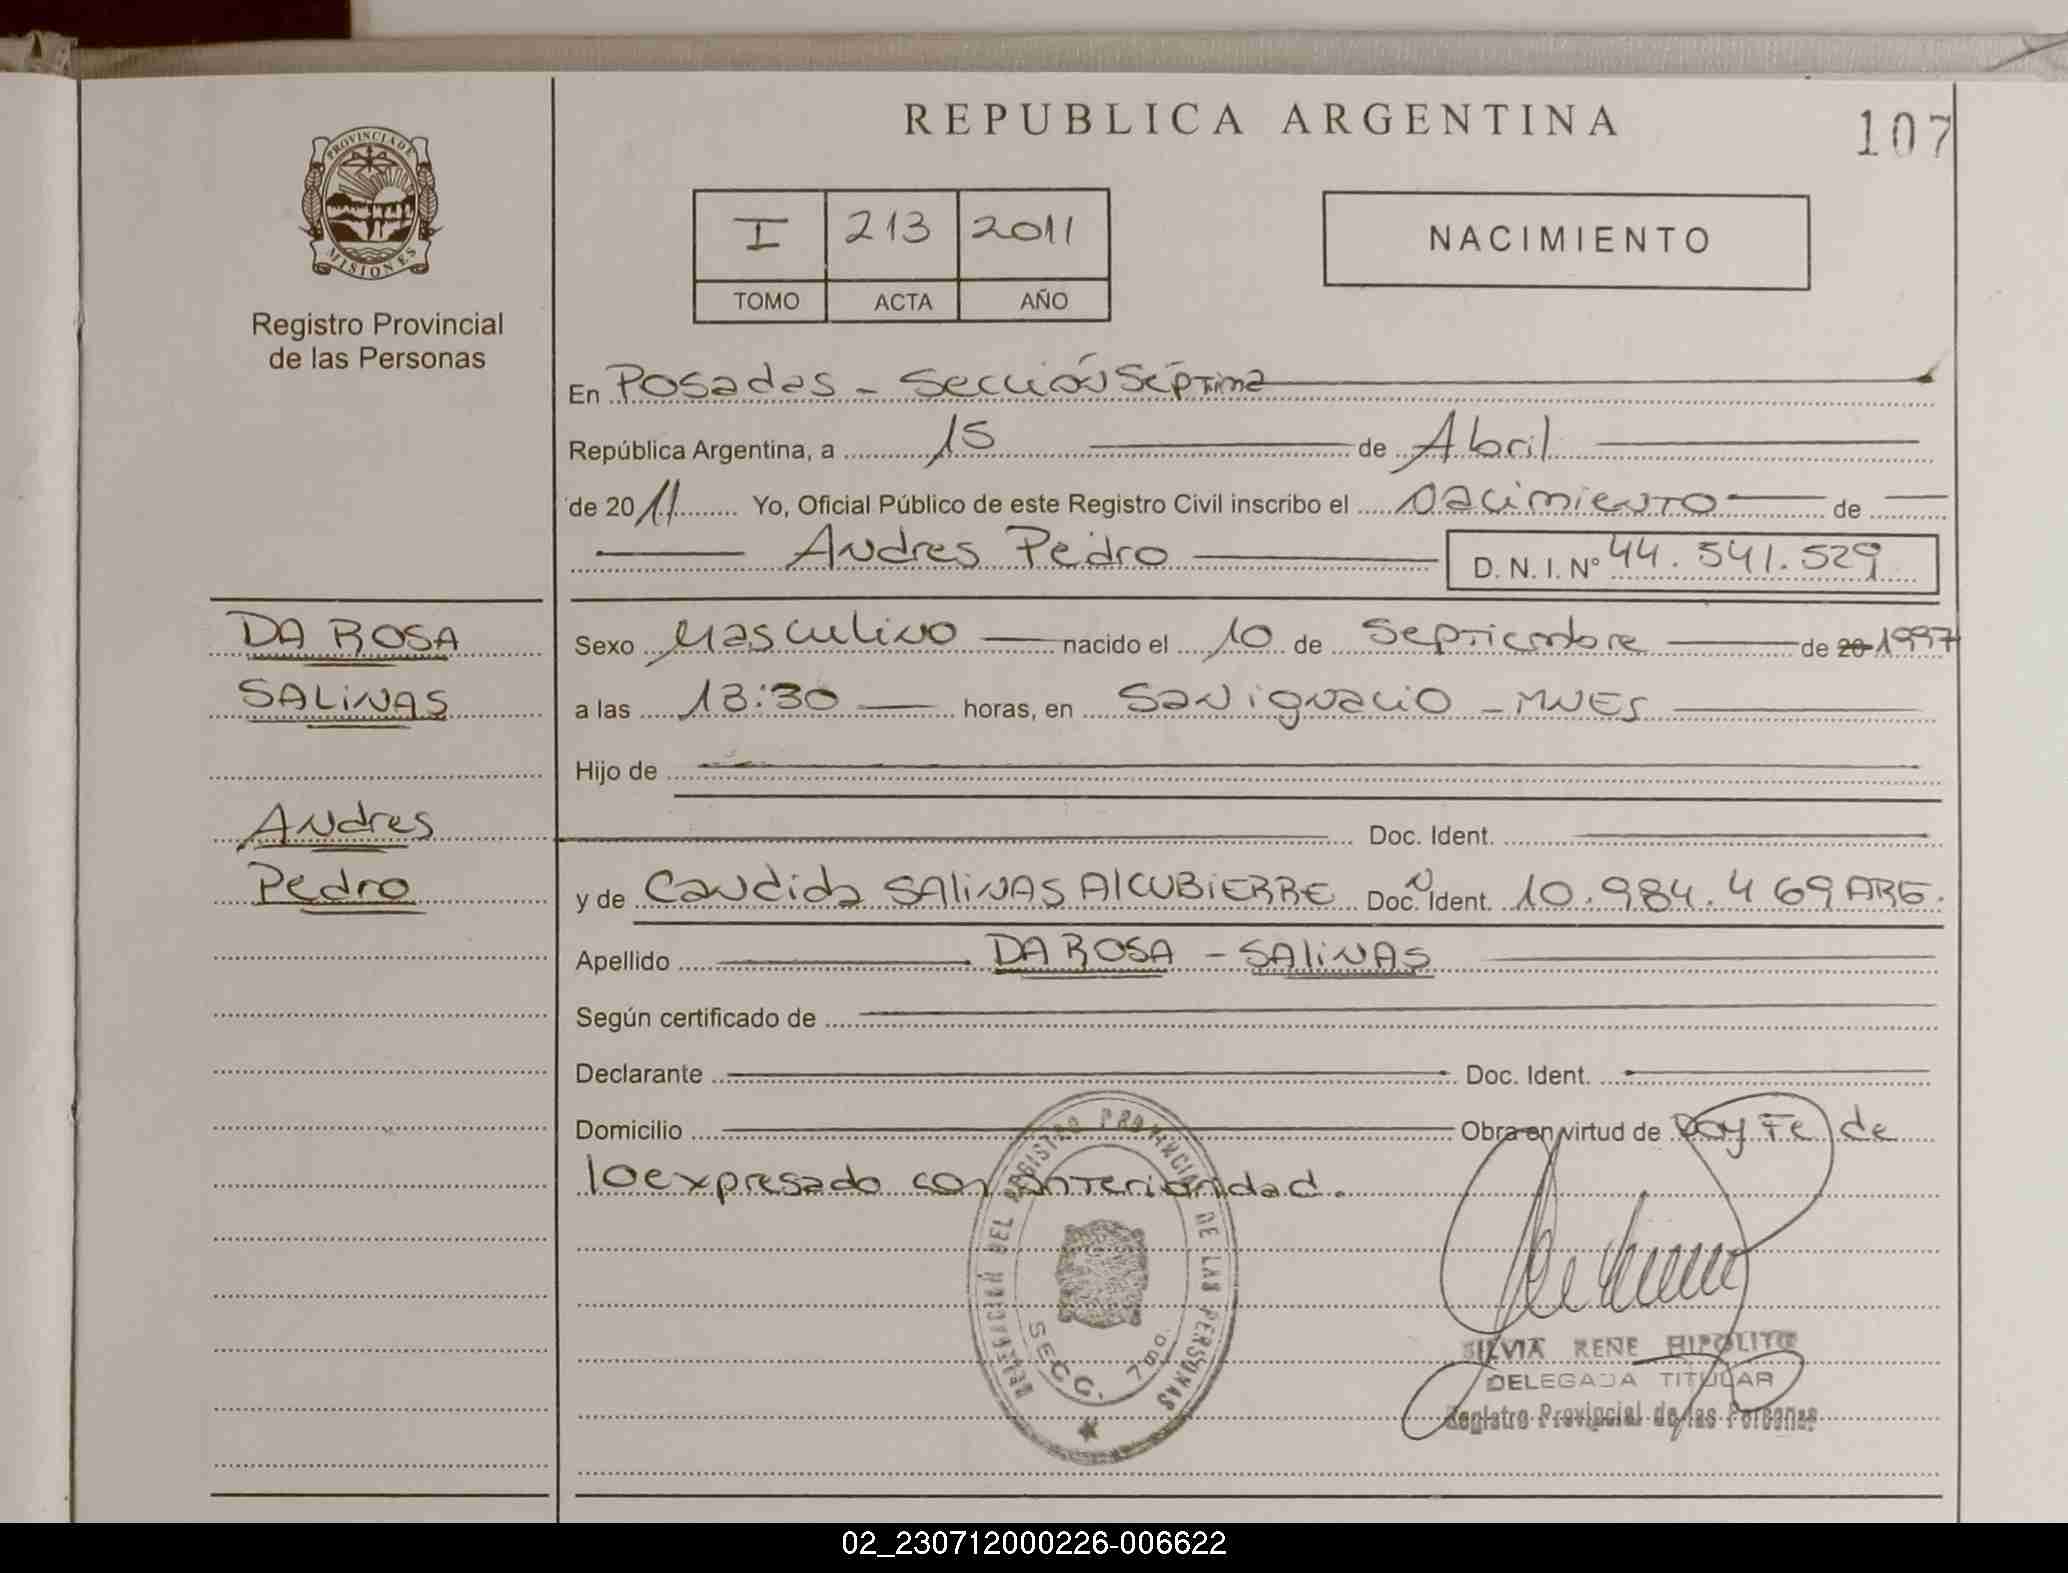 REPUBLICA ARGENTINA
107
PROVINCIA DE
MISIONES
Registro Provincial
de las Personas
I 213 2011
TOMO ACTA AÑO
NACIMIENTO
En Posadas - Sección Séptima
República Argentina, a 15 de Abril
de 2011 Yo, Oficial Público de este Registro Civil inscribo el nacimiento de
Andres Pedro D. N. I. Nº 44.541.529
DA ROSA
SALINAS
Andres
Pedro
Sexo Masculino nacido el 10 de Septiembre de 20 1997
a las 13:30 horas, en San ignacio - MNES
Hijo de
Doc. Ident.
y de Candida SALINAS AlCUBIERRE Doc. N Ident. 10.984.469 ARG.
Apellido DA ROSA - SALINAS
Según certificado de
Declarante Doc. Ident.
Domicilio Obra en virtud de Doy Fe de
lo expresado con anterioridad.
DELEGACION DEL REGISTRO PROVINCIAL DE LAS PERSONAS
SECC. 7ma.
SILVIA RENE HIPOLITO
DELEGADA TITULAR
Registro Provincial de las Personas
02_230712000226-006622